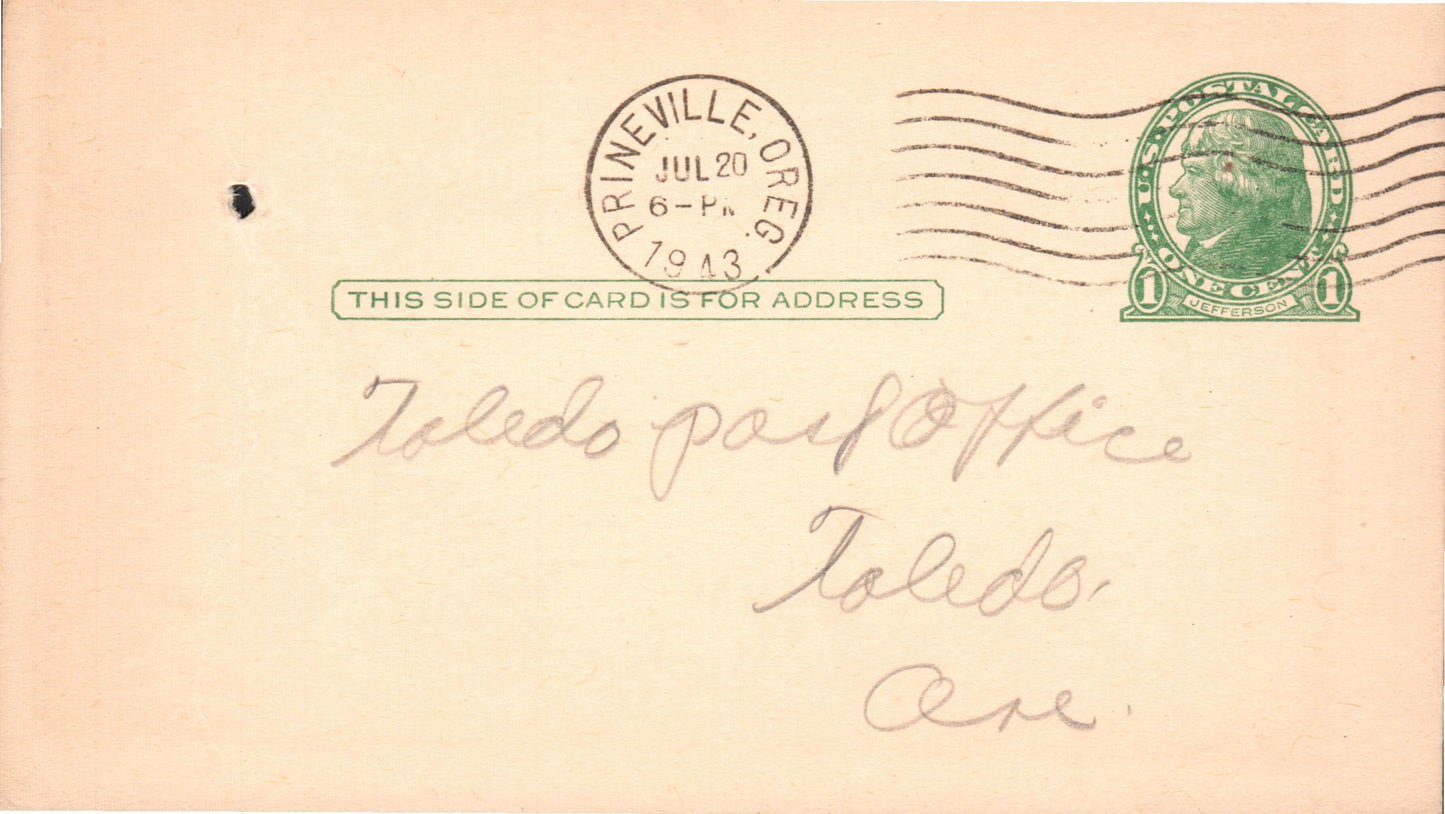 PRINEVILLE, OREG.
JUL 20
6-PM
1943
U.S. POSTAL CARD
ONE CENT
1 JEFFERSON 1
THIS SIDE OF CARD IS FOR ADDRESS
Toledo post Office
Toledo.
Ore.